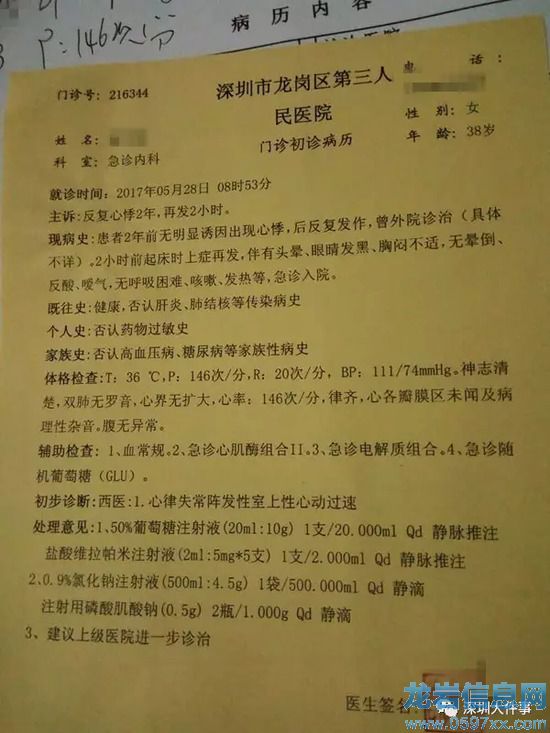 病历内容
P:146次/分
门诊号: 216344
深圳市龙岗区第三人
民医院
门诊初诊病历
电 话:
姓 名:
性 别: 女
科 室: 急诊内科
年 龄: 38岁
就诊时间: 2017年05月28日 08时53分
主诉:反复心悸2年，再发2小时。
现病史:患者2年前无明显诱因出现心悸，后反复发作，曾外院诊治（具体
不详）。2小时前起床时上症再发，伴有头晕、眼睛发黑、胸闷不适，无晕倒、
反酸、嗳气，无呼吸困难、咳嗽、发热等，急诊入院。
既往史:健康，否认肝炎、肺结核等传染病史
个人史:否认药物过敏史
家族史:否认高血压病、糖尿病等家族性病史
体格检查:T: 36 ℃,P: 146次/分,R: 20次/分, BP: 111/74mmHg。神志清
楚，双肺无罗音，心界无扩大，心率: 146次/分，律齐，心各瓣膜区未闻及病
理性杂音。腹无异常。
辅助检查: 1、血常规。2、急诊心肌酶组合II。3、急诊电解质组合。4、急诊随
机葡萄糖（GLU）。
初步诊断:西医:1.心律失常阵发性室上性心动过速
处理意见:1、50%葡萄糖注射液(20ml:10g) 1支/20.000ml Qd 静脉推注
盐酸维拉帕米注射液(2ml:5mg*5支) 1支/2.000ml Qd 静脉推注
2、0.9%氯化钠注射液(500ml:4.5g) 1袋/500.000ml Qd 静滴
注射用磷酸肌酸钠(0.5g) 2瓶/1.000g Qd 静滴
3、建议上级医院进一步诊治
医生签名:
龙岩信息网
深圳大件事
www.0597xx.com